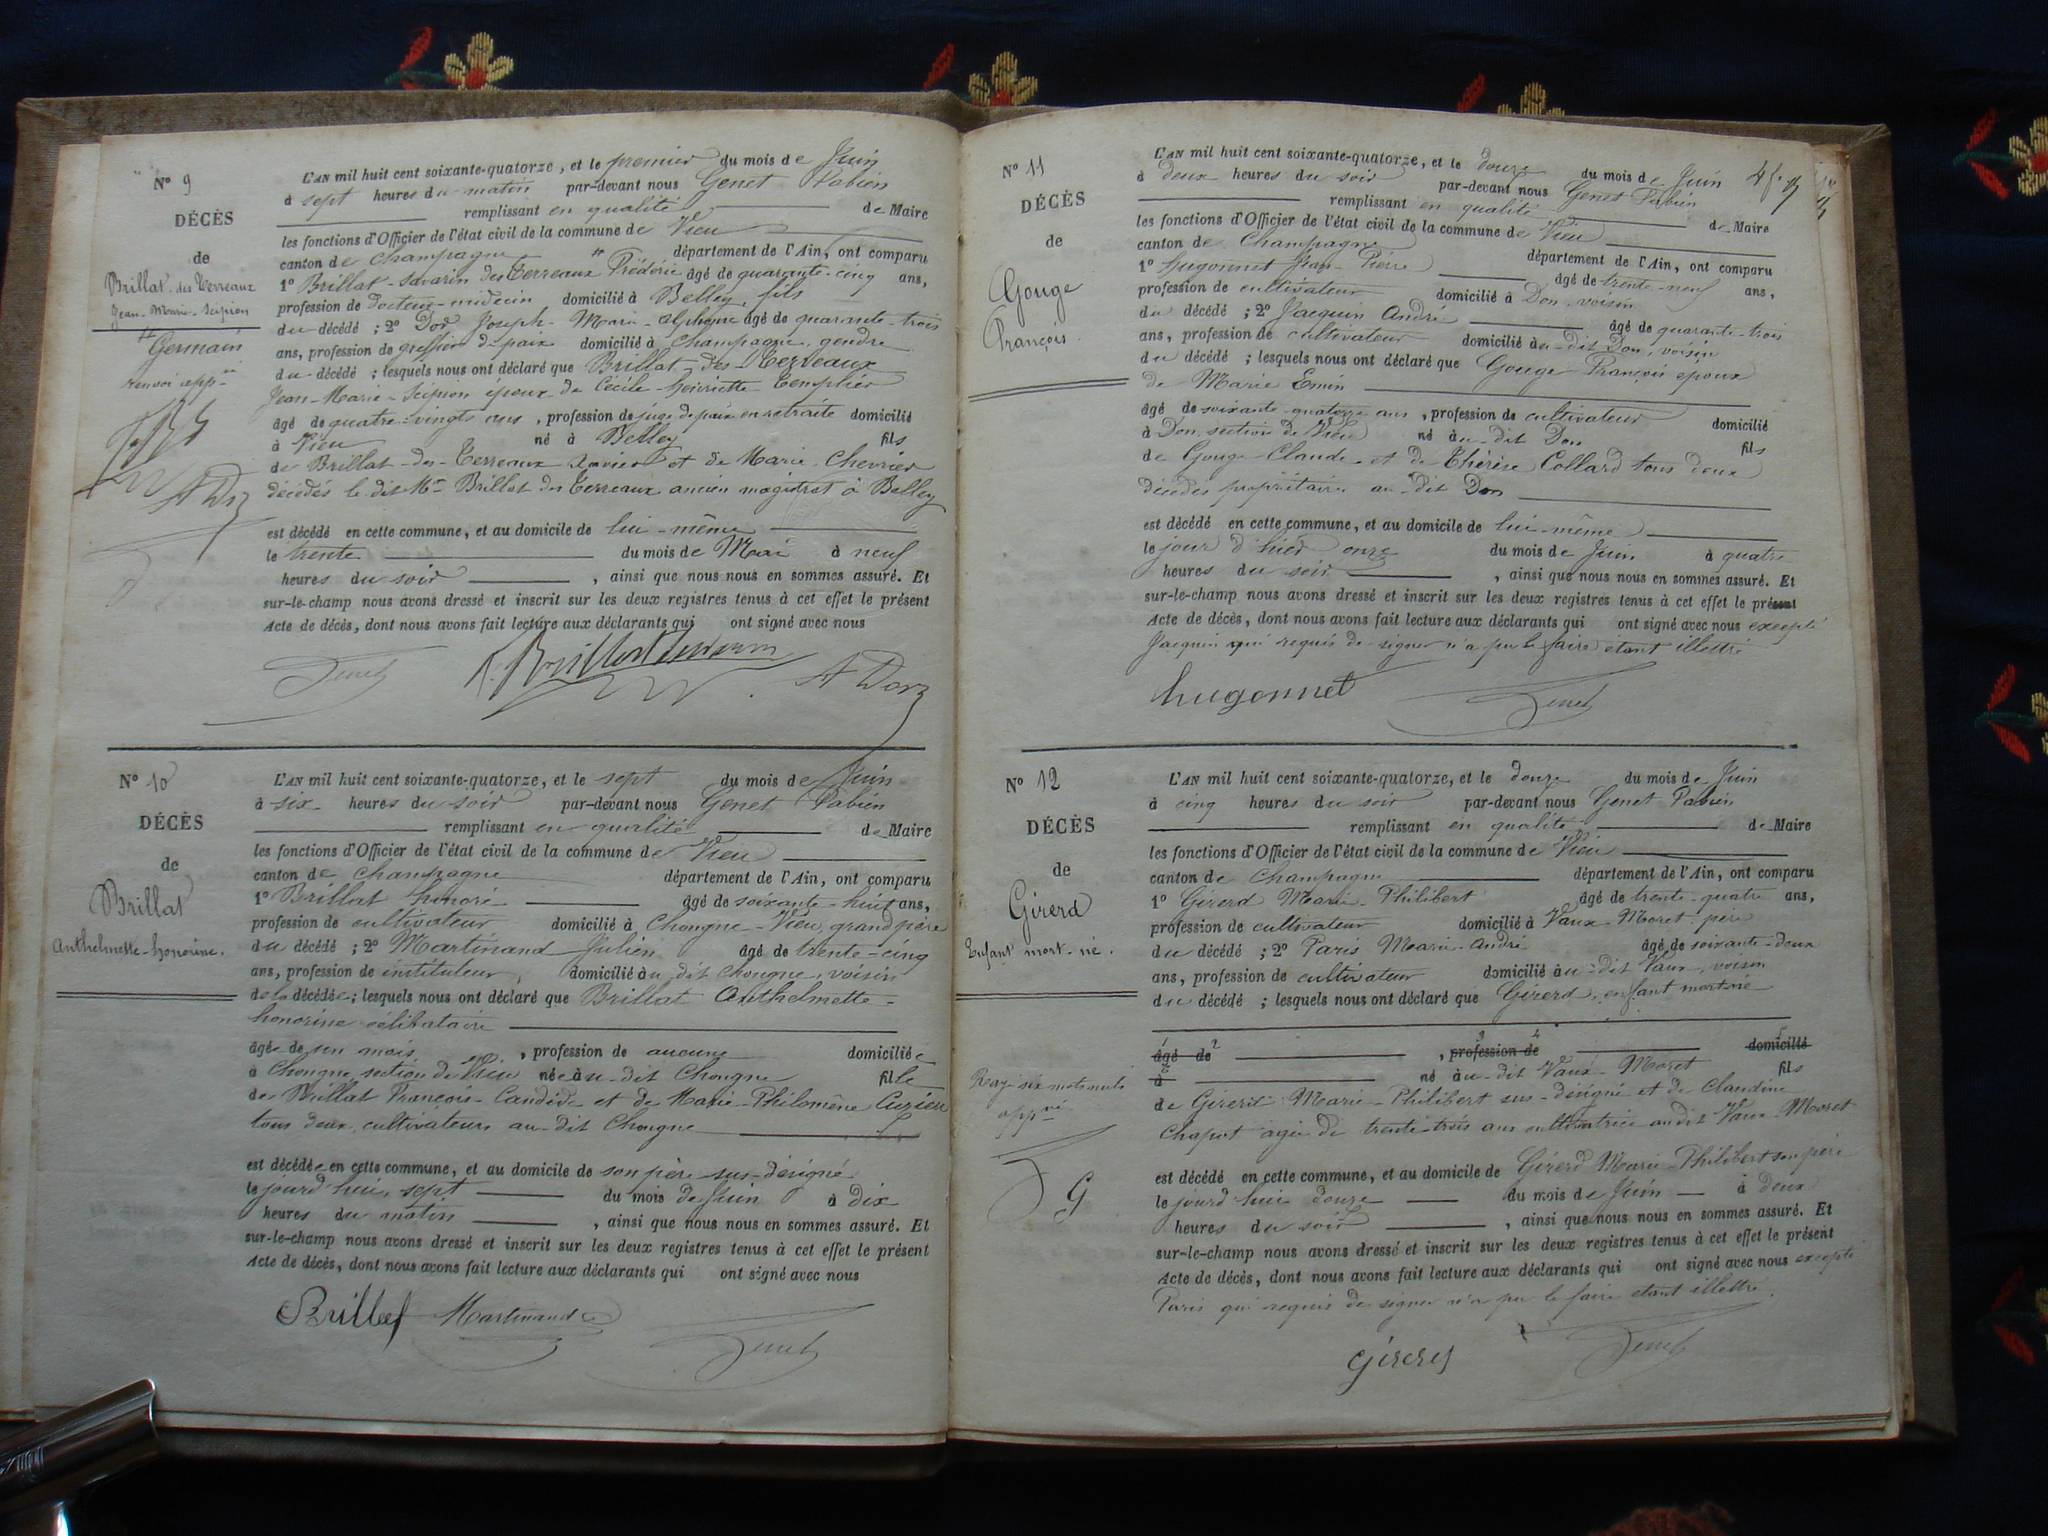 N° 9
DÉCÈS
de
Brillat des Terreaux
Jean-Marie-Scipion
Germain
renvoi app
L'AN mil huit cent soixante-quatorze, et le premier du mois de Juin
à sept heures du matin par-devant nous Genet Fabien
remplissant en qualité de Maire
les fonctions d'Officier de l'état civil de la commune de Vieu
canton de Champagne département de l'Ain, ont comparu
1° Brillat-Savarin des Terreaux Frédéric âgé de quarante-cinq ans,
profession de docteur-médecin domicilié à Belley, fils
du décédé ; 2° Dor Joseph-Marie-Alphonse âgé de quarante-trois
ans, profession de greffier de paix domicilié à Champagne, gendre
du décédé ; lesquels nous ont déclaré que Brillat-des-Terreaux
Jean-Marie-Scipion époux de Cécile-henriette Templier
âgé de quatre-vingts ans, profession de juge de paix en retraite domicilié
à Vieu né à Belley fils
de Brillat-des-Terreaux Xavier et de Marie Chevrier
décédés le dit Mr Brillat des Terreaux ancien magistrat à Belley
est décédé en cette commune, et au domicile de lui-même
le trente du mois de Mai à neuf
heures du soir, ainsi que nous nous en sommes assuré. Et
sur-le-champ nous avons dressé et inscrit sur les deux registres tenus à cet effet le présent
Acte de décès, dont nous avons fait lecture aux déclarants qui ont signé avec nous
Genet Brillat Savarin A Dor
N° 10
DÉCÈS
de
Brillat
Anthelmette-honorine.
L'AN mil huit cent soixante-quatorze, et le sept du mois de Juin
à six heures du soir par-devant nous Genet Fabien
remplissant en qualité de Maire
les fonctions d'Officier de l'état civil de la commune de Vieu
canton de Champagne département de l'Ain, ont comparu
1° Brillat honoré âgé de soixante-huit ans,
profession de cultivateur domicilié à Chongne-Vieu, grand père
du décédé ; 2° Martinand Julien âgé de trente-cinq
ans, profession de instituteur, domicilié à u dit Chongne, voisin
de la décédée ; lesquels nous ont déclaré que Brillat Anthelmette-
honorine célibataire
âgée de un mois, profession de aucune domiciliée
à Chongne, section de Vieu née à u-dit Chongne fille
de Brillat François-Candide et de Marie-Philomène Cuzien
tous deux cultivateurs au-dit Chongne
est décédée en cette commune, et au domicile de son père sus-désigné
le jourd hui, sept du mois de Juin à dix
heures du matin, ainsi que nous nous en sommes assuré. Et
sur-le-champ nous avons dressé et inscrit sur les deux registres tenus à cet effet le présent
Acte de décès, dont nous avons fait lecture aux déclarants qui ont signé avec nous
Brillat Martinand Genet
N° 11
DÉCÈS
de
Gouge
François.
L'AN mil huit cent soixante-quatorze, et le douze du mois de Juin
à deux heures du soir par-devant nous Genet Fabien
remplissant en qualité de Maire
les fonctions d'Officier de l'état civil de la commune de Vieu
canton de Champagne département de l'Ain, ont comparu
1° hugonnet Jean-Pierre âgé de trente-neuf ans,
profession de cultivateur domicilié à Don, voisin
du décédé ; 2° Jacquin André âgé de quarante-trois
ans, profession de cultivateur domicilié à u-dit Don, voisin
du décédé ; lesquels nous ont déclaré que Gouge François époux
de Marie Emin
âgé de soixante-quatorze ans, profession de cultivateur domicilié
à Don, section de Vieu né à u-dit Don fils
de Gouge-Claude-et de Thérèse Collard tous deux
décédés propriétaire au-dit Don
est décédé en cette commune, et au domicile de lui-même
le jour d'hier onze du mois de Juin à quatre
heures du soir, ainsi que nous nous en sommes assuré. Et
sur-le-champ nous avons dressé et inscrit sur les deux registres tenus à cet effet le présent
Acte de décès, dont nous avons fait lecture aux déclarants qui ont signé avec nous excepté
Jacquin qui requis de signer n'a pu le faire étant illettré
hugonnet Genet
N° 12
DÉCÈS
de
Girerd
Enfant mort-né.
Rayé six mots nuls
appvé
G
L'AN mil huit cent soixante-quatorze, et le douze du mois de Juin
à cinq heures du soir par-devant nous Genet Fabien
remplissant en qualité de Maire
les fonctions d'Officier de l'état civil de la commune de Vieu
canton de Champagne département de l'Ain, ont comparu
1° Girerd Marie-Philibert âgé de trente-quatre ans,
profession de cultivateur domicilié à Vaux-Moret-père
du décédé ; 2° Paris Marie-André âgé de soixante-deux
ans, profession de cultivateur domicilié à u-dit Vaux, voisin
du décédé ; lesquels nous ont déclaré que Girerd, enfant mort né
âgé de, profession de domicilié
à né à u-dit Vaux-Moret fils
de Girerd Marie-Philibert sus-désigné et de Claudine
Chapot agée de trente-trois ans cultivatrice audit Vaux-Moret
est décédé en cette commune, et au domicile de Girerd Marie-Philibert son père
le jourd hui douze du mois de Juin à deux
heures du soir, ainsi que nous nous en sommes assuré. Et
sur-le-champ nous avons dressé et inscrit sur les deux registres tenus à cet effet le présent
Acte de décès, dont nous avons fait lecture aux déclarants qui ont signé avec nous excepté
Paris qui requis de signer n'a pu le faire étant illettré.
Girerd Genet